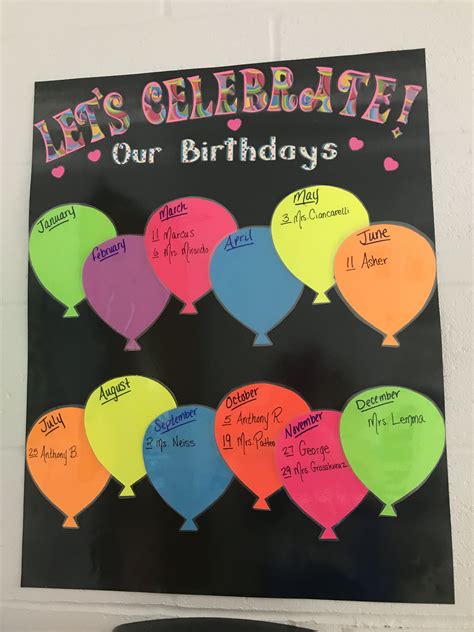 LET'S CELEBRATE!
Our Birthdays
January
February
March
11 Marcus
6 Mrs. Mirando
April
May
3 Mrs. Ciancarelli
June
11 Asher
July
25 Anthony B.
August
September
12 Ms. Neiss
October
5 Anthony R.
19 Mrs.
November
27 George
29 Mrs. Grosskreuz
December
Mrs. Lemma